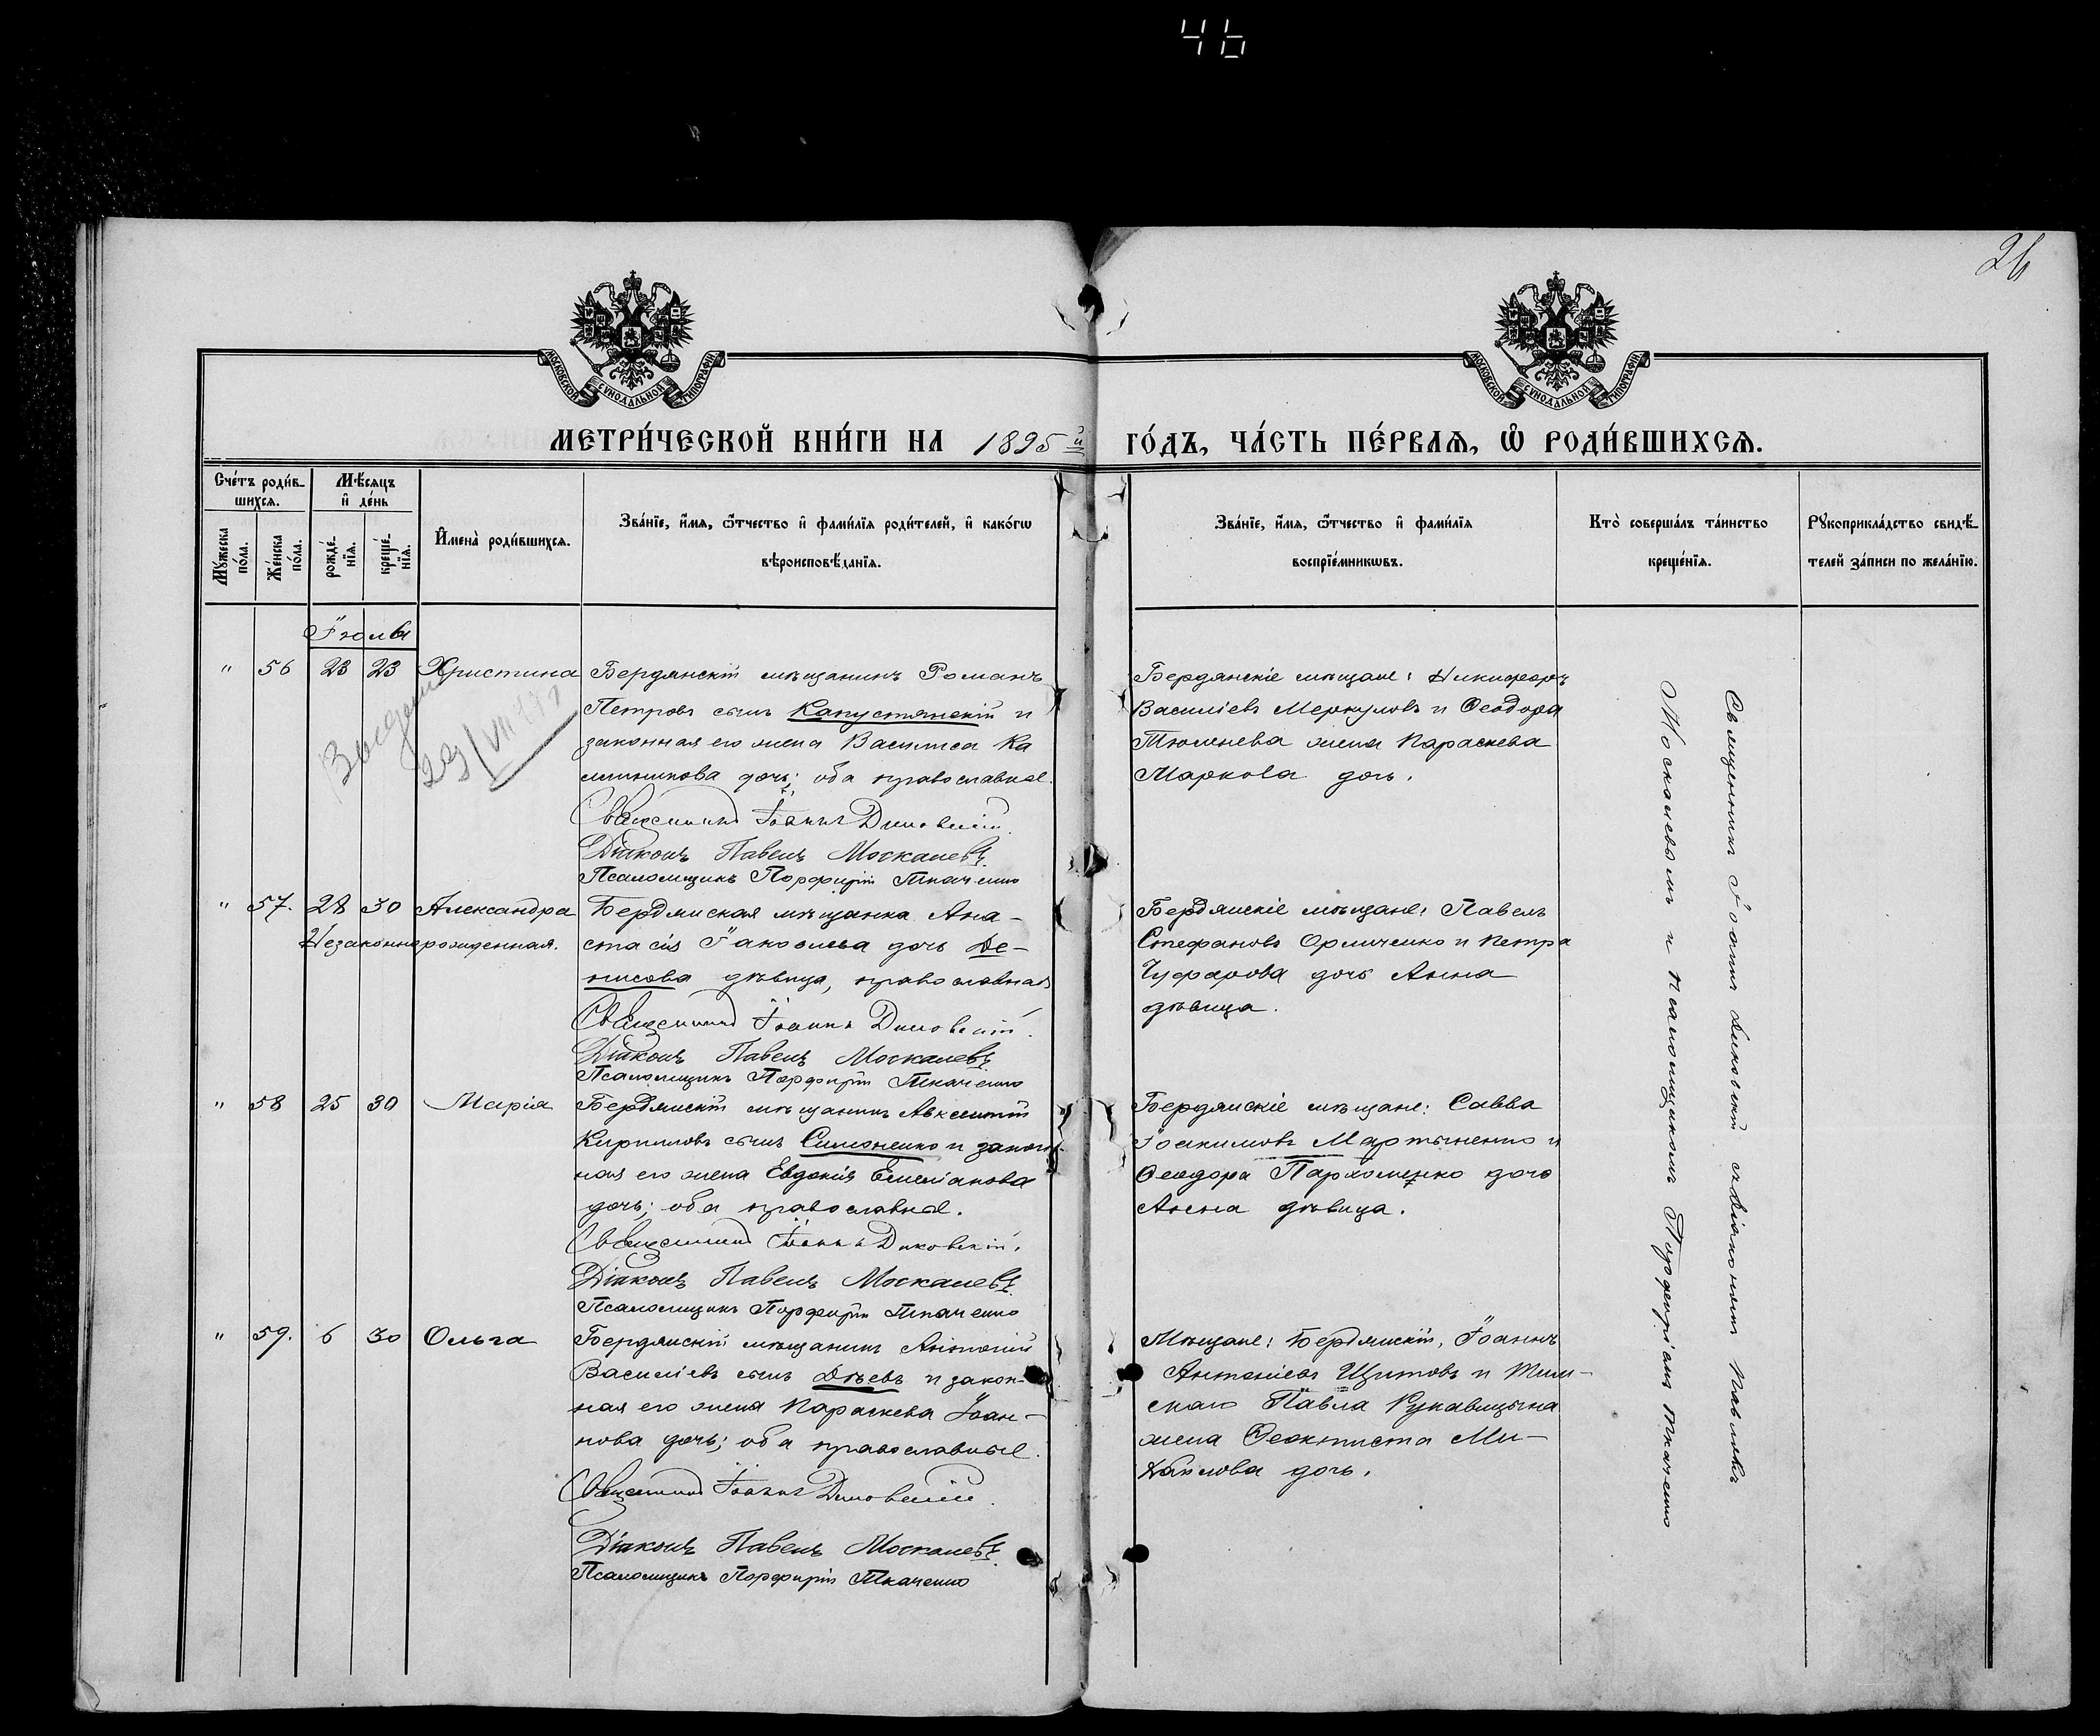 46
26
МОСКОВСКОЙ СѴНОДАЛЬНОЙ ТИПОГРАФІИ
МОСКОВСКОЙ СѴНОДАЛЬНОЙ ТИПОГРАФІИ
МЕТРИ́ЧЕСКОЙ КНИ́ГИ НА 1895й ГО́ДЪ, ЧА́СТЬ ПЕ́РВАѦ, Ѽ РОДИ́ВШИХСѦ.
Сче́тъ роди́в-
шихсѧ.
Мꙋ́жеска по́ла.
Же́нска по́ла.
Мѣ́сяцъ
и҆ де́нь
рожде́-
нїѧ.
креще́-
нїѧ.
И҆мена̀ роди́вшихсѧ.
Зва́нїе, и҆́мѧ, ѻ҆́тчество и҆ фами́лїѧ роди́телей, и҆ како́гѡ
вѣроисповѣ́данїѧ.
Зва́нїе, и҆́мѧ, ѻ҆́тчество и҆ фами́лїѧ
воспрїе́мникѡвъ.
Кто̀ соверша́лъ та́инство
креще́нїѧ.
Рꙋкоприкла́дство свидѣ́-
телей за́писи по жела́нїю.
Іюль
" 56 23 23 Христина
Бердянскій мѣщанинъ Романъ
Петровъ сынъ Капустянскій и
законная его жена Василиса Ка
линникова дочь; оба православные.
Священникъ Іоаннъ Диковскій.
Діаконъ Павелъ Москалевъ.
Псаломщикъ Порфирій Ткаченко
Бердянскіе мѣщане: Никифоръ
Василіевъ Меркуловъ и Ѳеодора
Тюменева жена Параскева
Маркова дочь.
" 57. 28 30 Александра
Незаконнорожденная.
Бердянская мѣщанка Ана-
стасія Іаковлева дочь Де-
нисова дѣвица, православная
Священникъ Іоаннъ Диковскій.
Діаконъ Павелъ Москалевъ
Псаломщикъ Порфирій Ткаченко
Бердянскіе мѣщане: Павелъ
Стефановъ Орличенко и Петра
Чуфарова дочь Анна
дѣвица.
" 58 25 30 Марія
Бердянскій мѣщанинъ Авксентій
Кирилловъ сынъ Симоненко и закон
ная его жена Евдокія Емеліанова
дочь; оба православные.
Священникъ Іоаннъ Диковскій.
Діаконъ Павелъ Москалевъ.
Псаломщикъ Порфирій Ткаченко
Бердянскіе мѣщане: Савва
Іоакимовъ Мартыненко и
Ѳеодора Пархоменко дочь
Анна дѣвица.
" 59. 6 30 Ольга
Бердянскій мѣщанинъ Антоній
Василіевъ сынъ Дѣевъ и закон-
ная его жена Параскева Іоан-
нова дочь; оба православные.
Священникъ Іоаннъ Диковскій.
Діаконъ Павелъ Москалевъ.
Псаломщикъ Порфирій Ткаченко
Мѣщане: Бердянскій, Іоаннъ
Антоніевъ Щитовъ и Тим-
скаго Павла Рукавицына
жена Ѳеоктиста Ми-
хайлова дочь.
Священникъ Іоаннъ Диковскій съ діакономъ Павломъ
Москалевымъ и псаломщикомъ Порфиріемъ Ткаченко